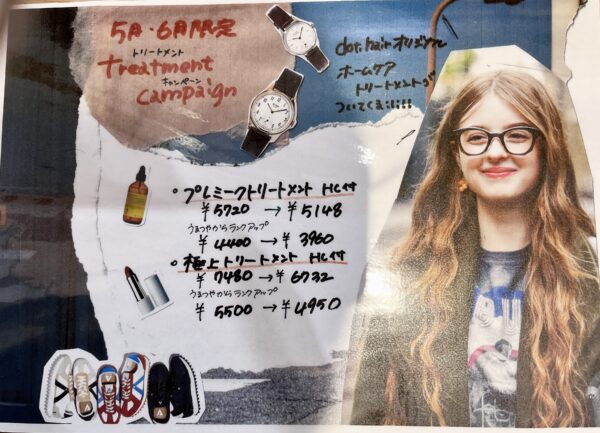 5月・6月限定
トリートメント
treatment
キャンペーン
campaign
dot.hair オリジナル
ホームケア
トリートメントが
ついてくる!!!!
・プレミークトリートメント HC付
¥5720 → ¥5148
うるつやからランクアップ
¥4400 → ¥3960
・極上トリートメント HC付
¥7480 → ¥6732
うるつやからランクアップ
¥5500 → ¥4950